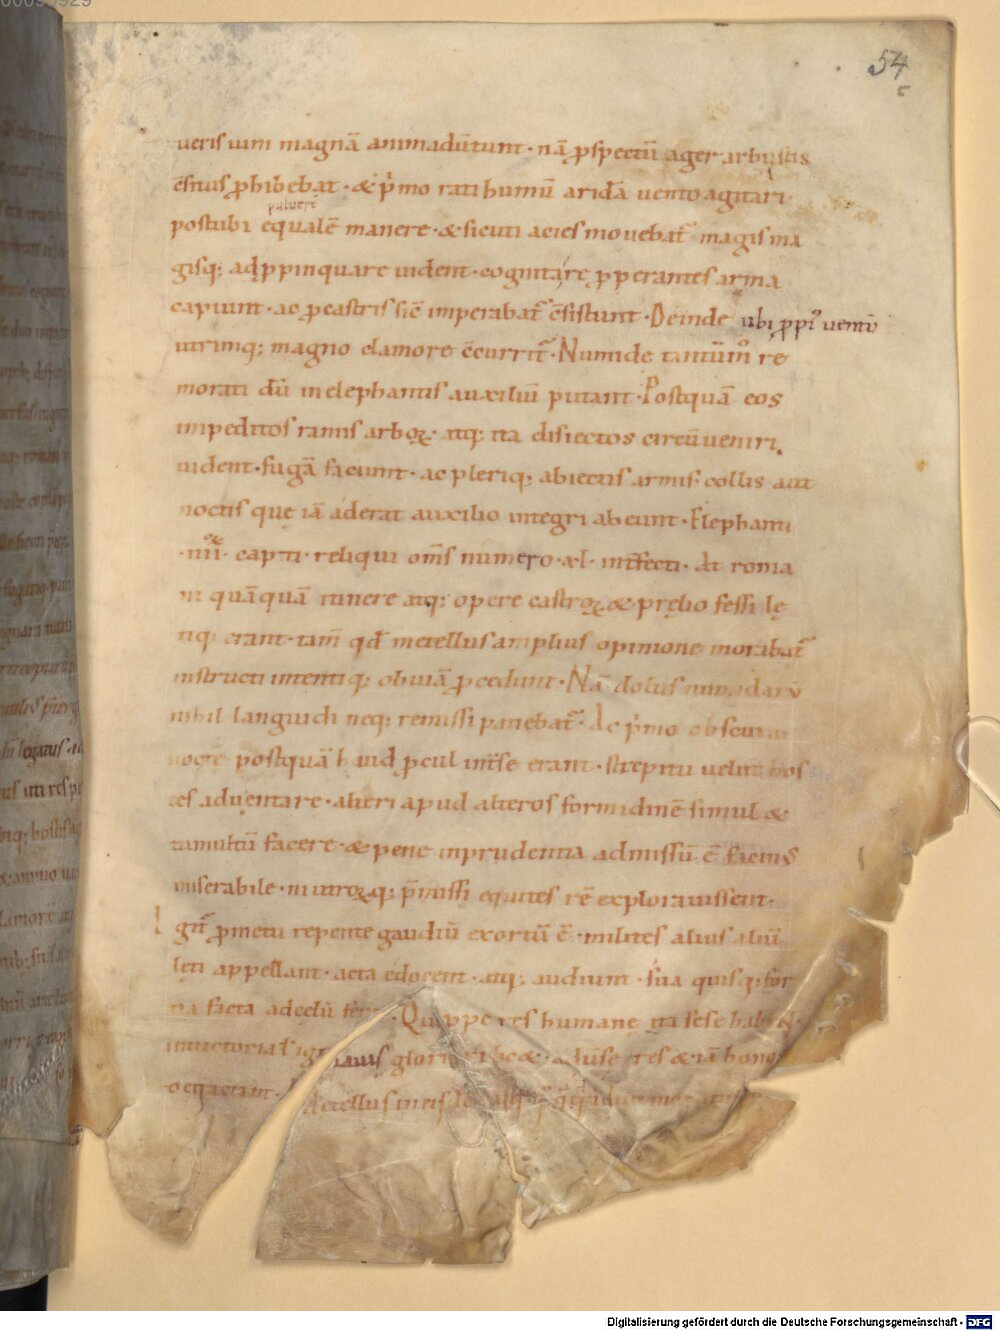 00095929
54
uerisuim magnā animadūtunt· nā ꝓspectū ager arbustis
c̄situs ꝓhibebat· & p̍mo rati humū aridā uento agitari·
pulverē
postubi equalē manere· & sicuti acies mouebat᷑ magis ma
gisq; adꝓpinquare uident· cognitare ꝓperantes arma
capiunt· ac ꝓcastris sic̄ imperabat᷑ c̄sistunt· Deinde ubi ꝓpi᷑ uentū
utrimq; magno clamore c̄currit᷑· Numide tantūm̊ re
morati dū inelephantis auxiliū putant· Postquā eos
impeditos ramis arboꝝ· atq; ita disiectos circūueniri
uident· fugā faciunt· ac pleriq; abiectis armis· collis aut
noctis que iā aderat auxilio integri abeunt· Elephanti
·iiii· capti· reliqui om̄s numero· xl· int̄fecti· At roma
ni quāquā itinere atq; opere castroꝝ & pręlio fessi lę
tiq; erant· tam̄ qđ metellus amplius opinione morabat᷑
instructi intentiq; obuiā ꝓcedunt· Nā dolus numidarū
nihil languidi neq; remissi patiebat᷑· Ac p̍mo obscura
nocte postquā haud ꝓcul int̄se erant· strepitu uelut hos
tes aduentare· alteri apud alteros formidinē simul &
tumultū facere· & pene inprudentia admissū ē facinus
miserabile· ni utroꝝq; p̄missi equites rē explorauissent·
I git᷑ ꝓmetu repente gaudiū exortū ē· milites alius aliū
leti appellant· acta edocent· atq; audiunt· sua quisq; for
tia facta adcelū fert· Quippe res humane ita sese habent·
inuictoria l̄ ignauis gloriari licet· aduerse res etiā bonos
Metellus in eisdē castris
Digitalisierung gefördert durch die Deutsche Forschungsgemeinschaft - DFG